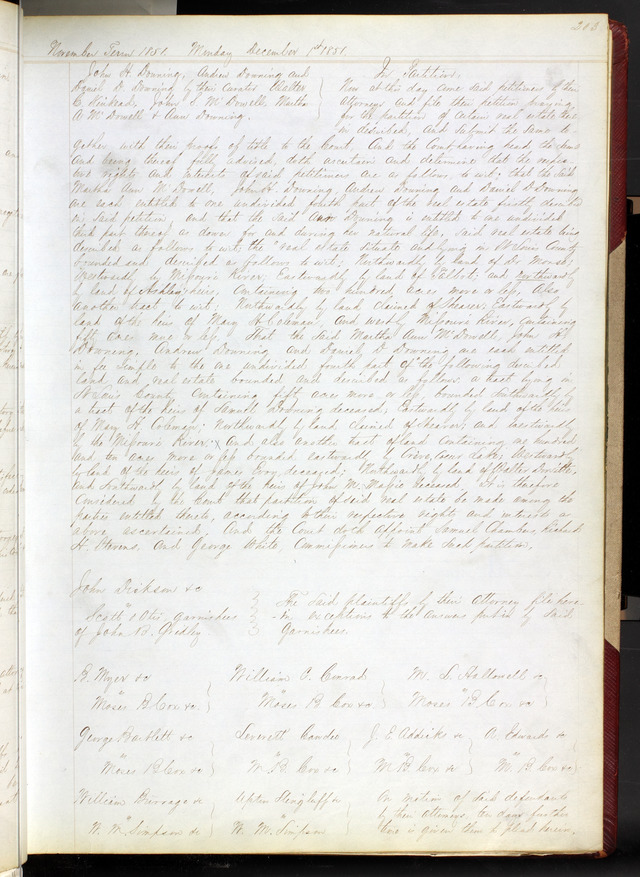 213
November Term 1851. Monday December 1st 1851.
John H Downing, Andrew Downing and
Daniel D. Downing by their Curator
John S McDowell Martha
A McDowell & Ann Downing.
In Partition.
Now at this day come said petitioners by their
attorneys and file their petition praying
for the partition of certain real estate there
in described, and submit the same to
gether with their proofs of title to the Court, And the Court having heard the same
and being thereof fully advised, doth ascertain and determine that the respec
tive rights and interests of said petitioners are as follows, to wit; that the said
Martha Ann McDowell, John H. Downing, Andrew Downing and Daniel D. Downing
are each entitled to one undivided fourth part of the real estate firstly described
in said petition and that the said Ann Downing is entitled to one undivided
third part thereof as dower for and during her natural life, said real estate being
described as follows to wit, the real estate situate and lying in St Louis County
bounded and described as follows to wit; Northwardly by land of
Westwardly by Missouri River; Eastwardly by land of Talbot; and
by land of heirs, Containing two hundred acres more or less, Also
another tract to wit: Northwardly by land claimed of Shearer; Eastwardly by
land of the heirs of Mary H. Coleman, And west by Missouri River, Containing
fifty acres more or less, That the said Martha Ann McDowell, John H.
Downing, Andrew Downing and Daniel D. Downing are each entitled
in fee simple to the one undivided fourth part of the following described
land and real estate bounded and described as follows: a tract lying in
St Louis County Containing fifty acres more or less, bounded Southwardly by
a tract of the heirs of Samuel Downing deceased, Eastwardly by land of the heirs
of Mary H. Coleman; Northwardly by land claimed of Shearer; and westwardly
by the Missouri River; And also another tract of land Containing one hundred
and ten acres more or less bounded eastwardly by Creve Coeur Lake; Westwardly
by land of the heirs of James deceased; Northwardly by land of Walter
and Southwardly by land of the heirs of John McMaffie deceased, It is therefore
Considered by the Court that partition of said real estate be made among the
parties entitled thereto, according to their respective rights and interests as
above ascertained. And the Court doth appoint Samuel Chambers, Richard
H. Stevens and George White, Commissioners to make such partition.
John Dickson &c
Scott & Otis garnishees
of John B. Gridley
The said plaintiffs by their Attorney file here
in exceptions to the answers put in by said
Garnishees.
B. Myer &c
"
Moses B. Cox &c.
William C. Conrad
"
Moses B Cox &c
M. L. Hallowell &c
"
Moses B. Cox &c
George Bartlett &c
"
Moses B. Cox &c
Leverett Candee
"
M. B. Cox &c
J. E Addicks &c
"
M. B. Cox &c
A. Edwards &c
"
M. B. Cox &c
William Burrage &c
"
W. M. Simpson &c
"
W. M. Simpson
On motion of said defendants
by their attorneys, ten days further
time is given them to plead herein.